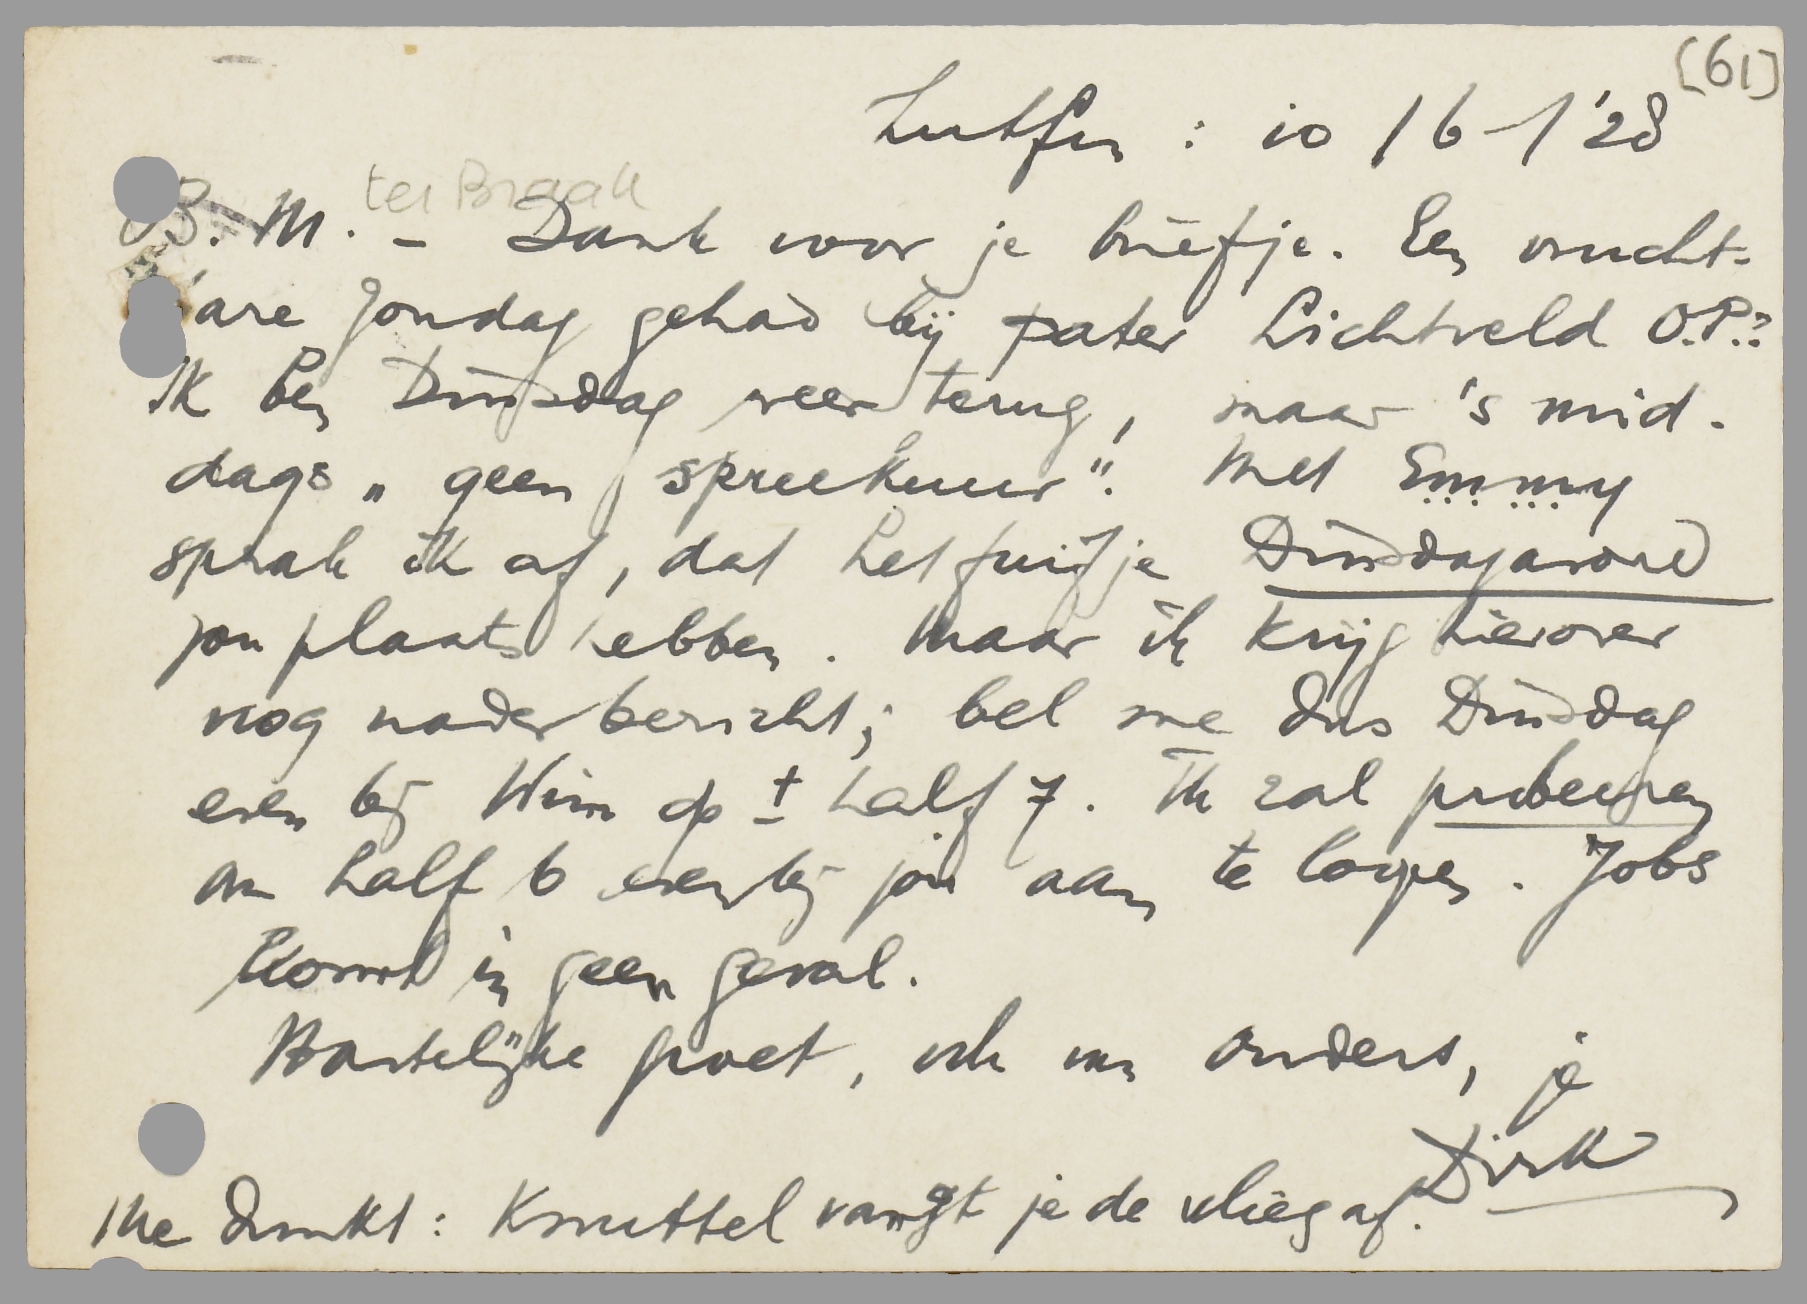 [61]
Zutfen : 10/6-/'28
ter Braak
B. M. - Dank voor je briefje. Een vrucht-
bare Zondag gehad bij pater Lichtveld O.P.?
Ik ben Dinsdag weer terug, maar 's mid-
dags „geen spreekuur". Met Emmy
sprak ik af, dat het fuifje Dinsdagavond
zou plaats hebben. Maar ik krijg hierover
nog nader bericht; bel me dus Dinsdag
even bij Wim op ± half 7. Ik zal probeeren
om half 6 even bij jou aan te loopen. Jobs
komt in geen geval.
Hartelijke groet, ook van ouders, je
Dirk
Me dunkt: Knuttel vangt je de vlieg af.